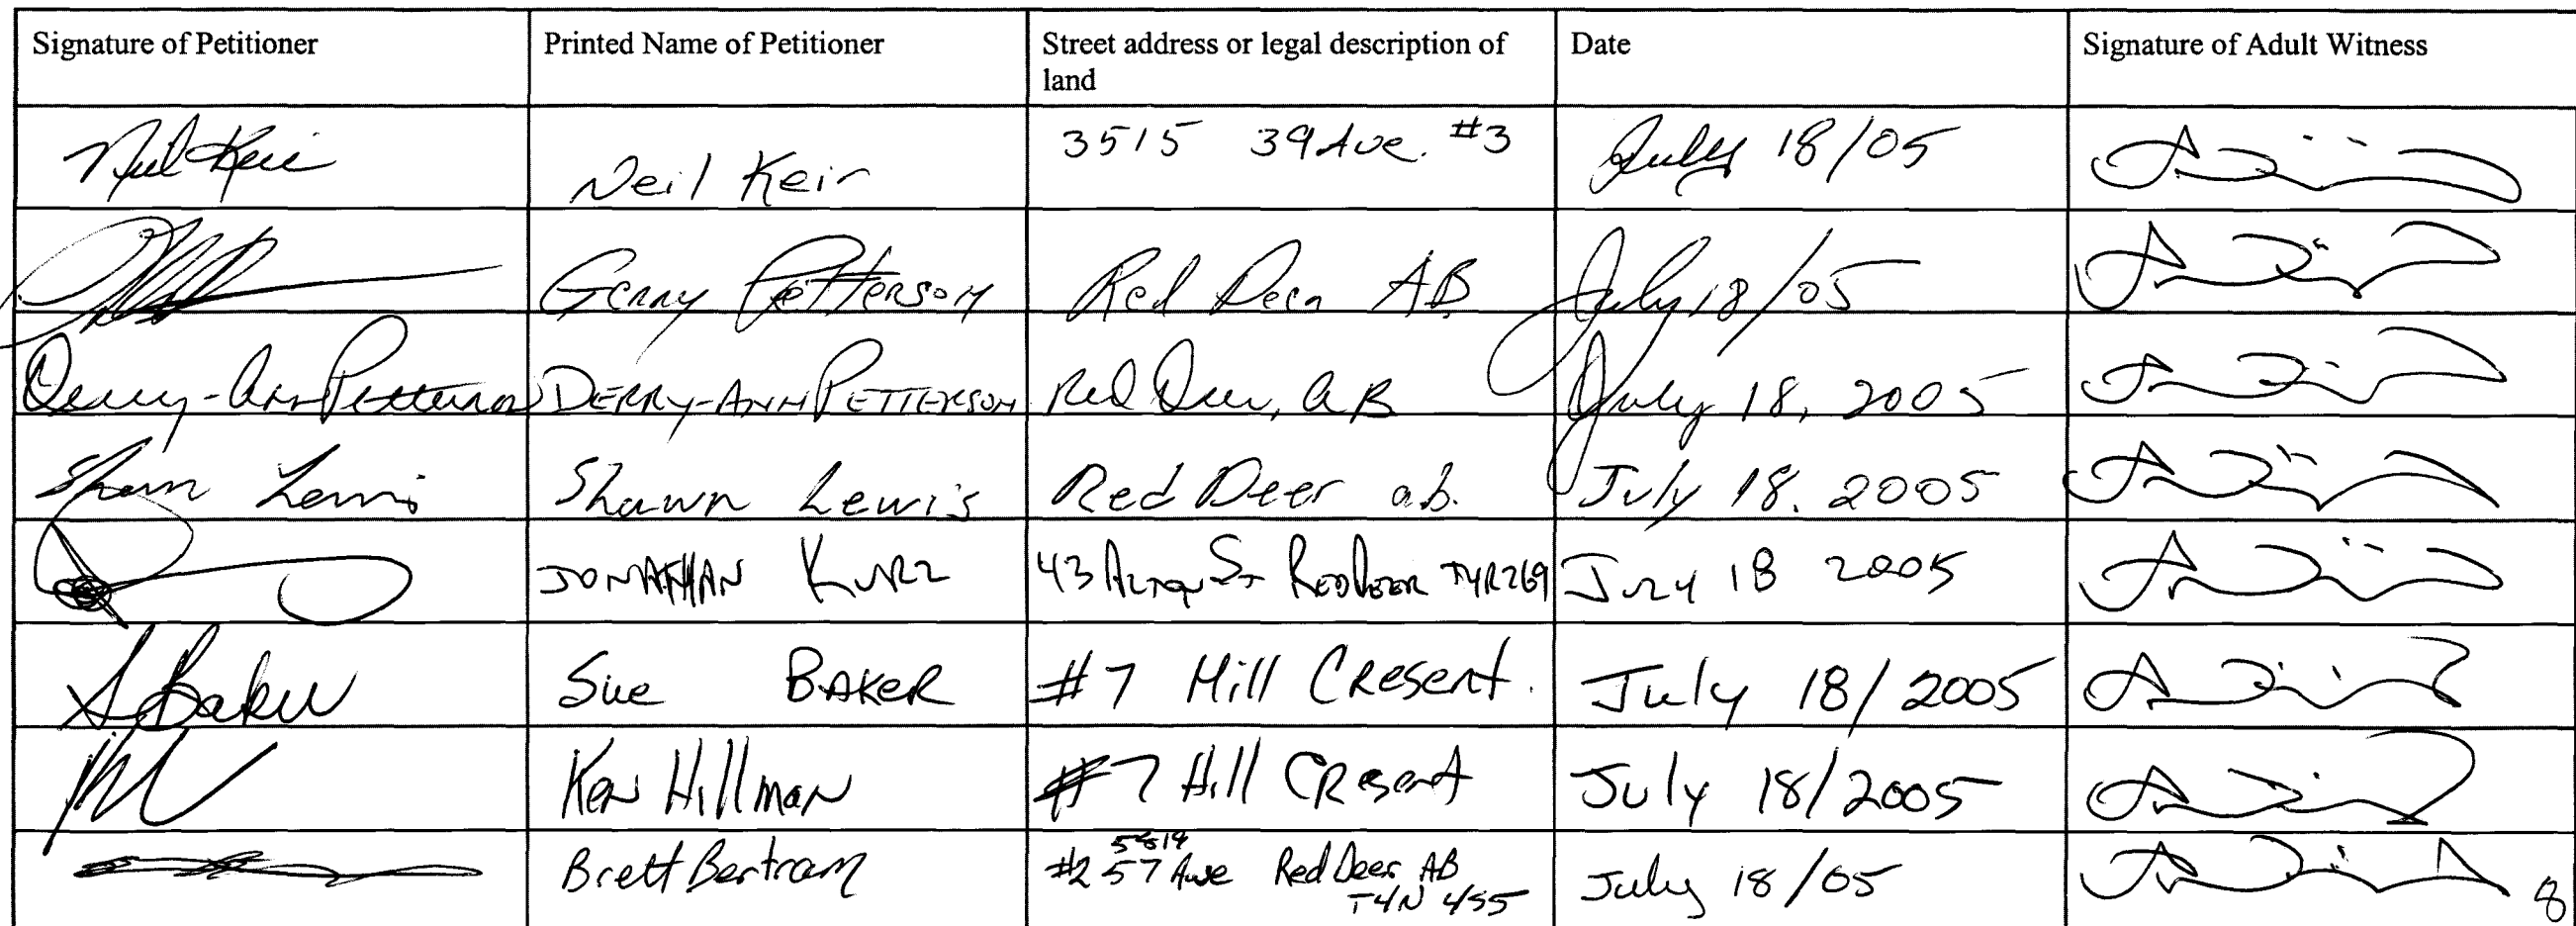 Signature of Petitioner Printed Name of Petitioner Street address or legal description of land Date Signature of Adult Witness
Neil Keir Neil Keir 3515 39 Ave. #3 July 18/05
Gerry Petterson Red Deer AB July 18/05
Derry-Ann Petterson DERRY-ANN PETTERSON Red Deer, AB July 18, 2005
Shawn Lewis Shawn Lewis Red Deer ab. July 18. 2005
JONATHAN KURZ 43 St RED DEER July 18 2005
S Baker Sue BAKER #7 Hill CResent. July 18/2005
Ken Hillman #7 Hill CResent July 18/2005
Brett Bertram #2 5819 57 Ave Red Deer AB July 18/05
T4N 4S5
8